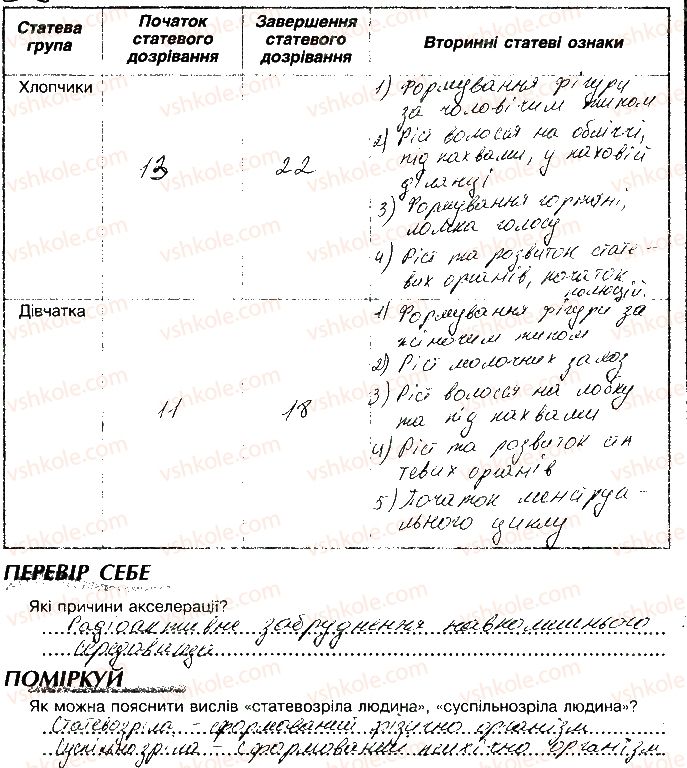 Статева група
Початок статевого дозрівання
Завершення статевого дозрівання
Вторинні статеві ознаки
Хлопчики
13
22
1) Формування фігури
за чоловічим типом
2) Ріст волосся на обличчі,
під пахвами, у паховій
ділянці
3) Формування гортані,
ломка голосу
4) Ріст та розвиток стате-
вих органів, початок
полюцій.
Дівчатка
11
18
1) Формування фігури за
жіночим типом
2) Ріст молочних залоз
3) Ріст волосся на лобку
та під пахвами
4) Ріст та розвиток
тевих органів
5) Початок менструа-
льного циклу
ПЕРЕВІР СЕБЕ
Які причини акселерації?
Радіоактивне забруднення навколишнього
середовища
ПОМІРКУЙ
Як можна пояснити вислів «статевозріла людина», «суспільнозріла людина»?
Статевозріла - сформований фізично організм
Суспільнозріла - сформований психічно організм
vshkole.com